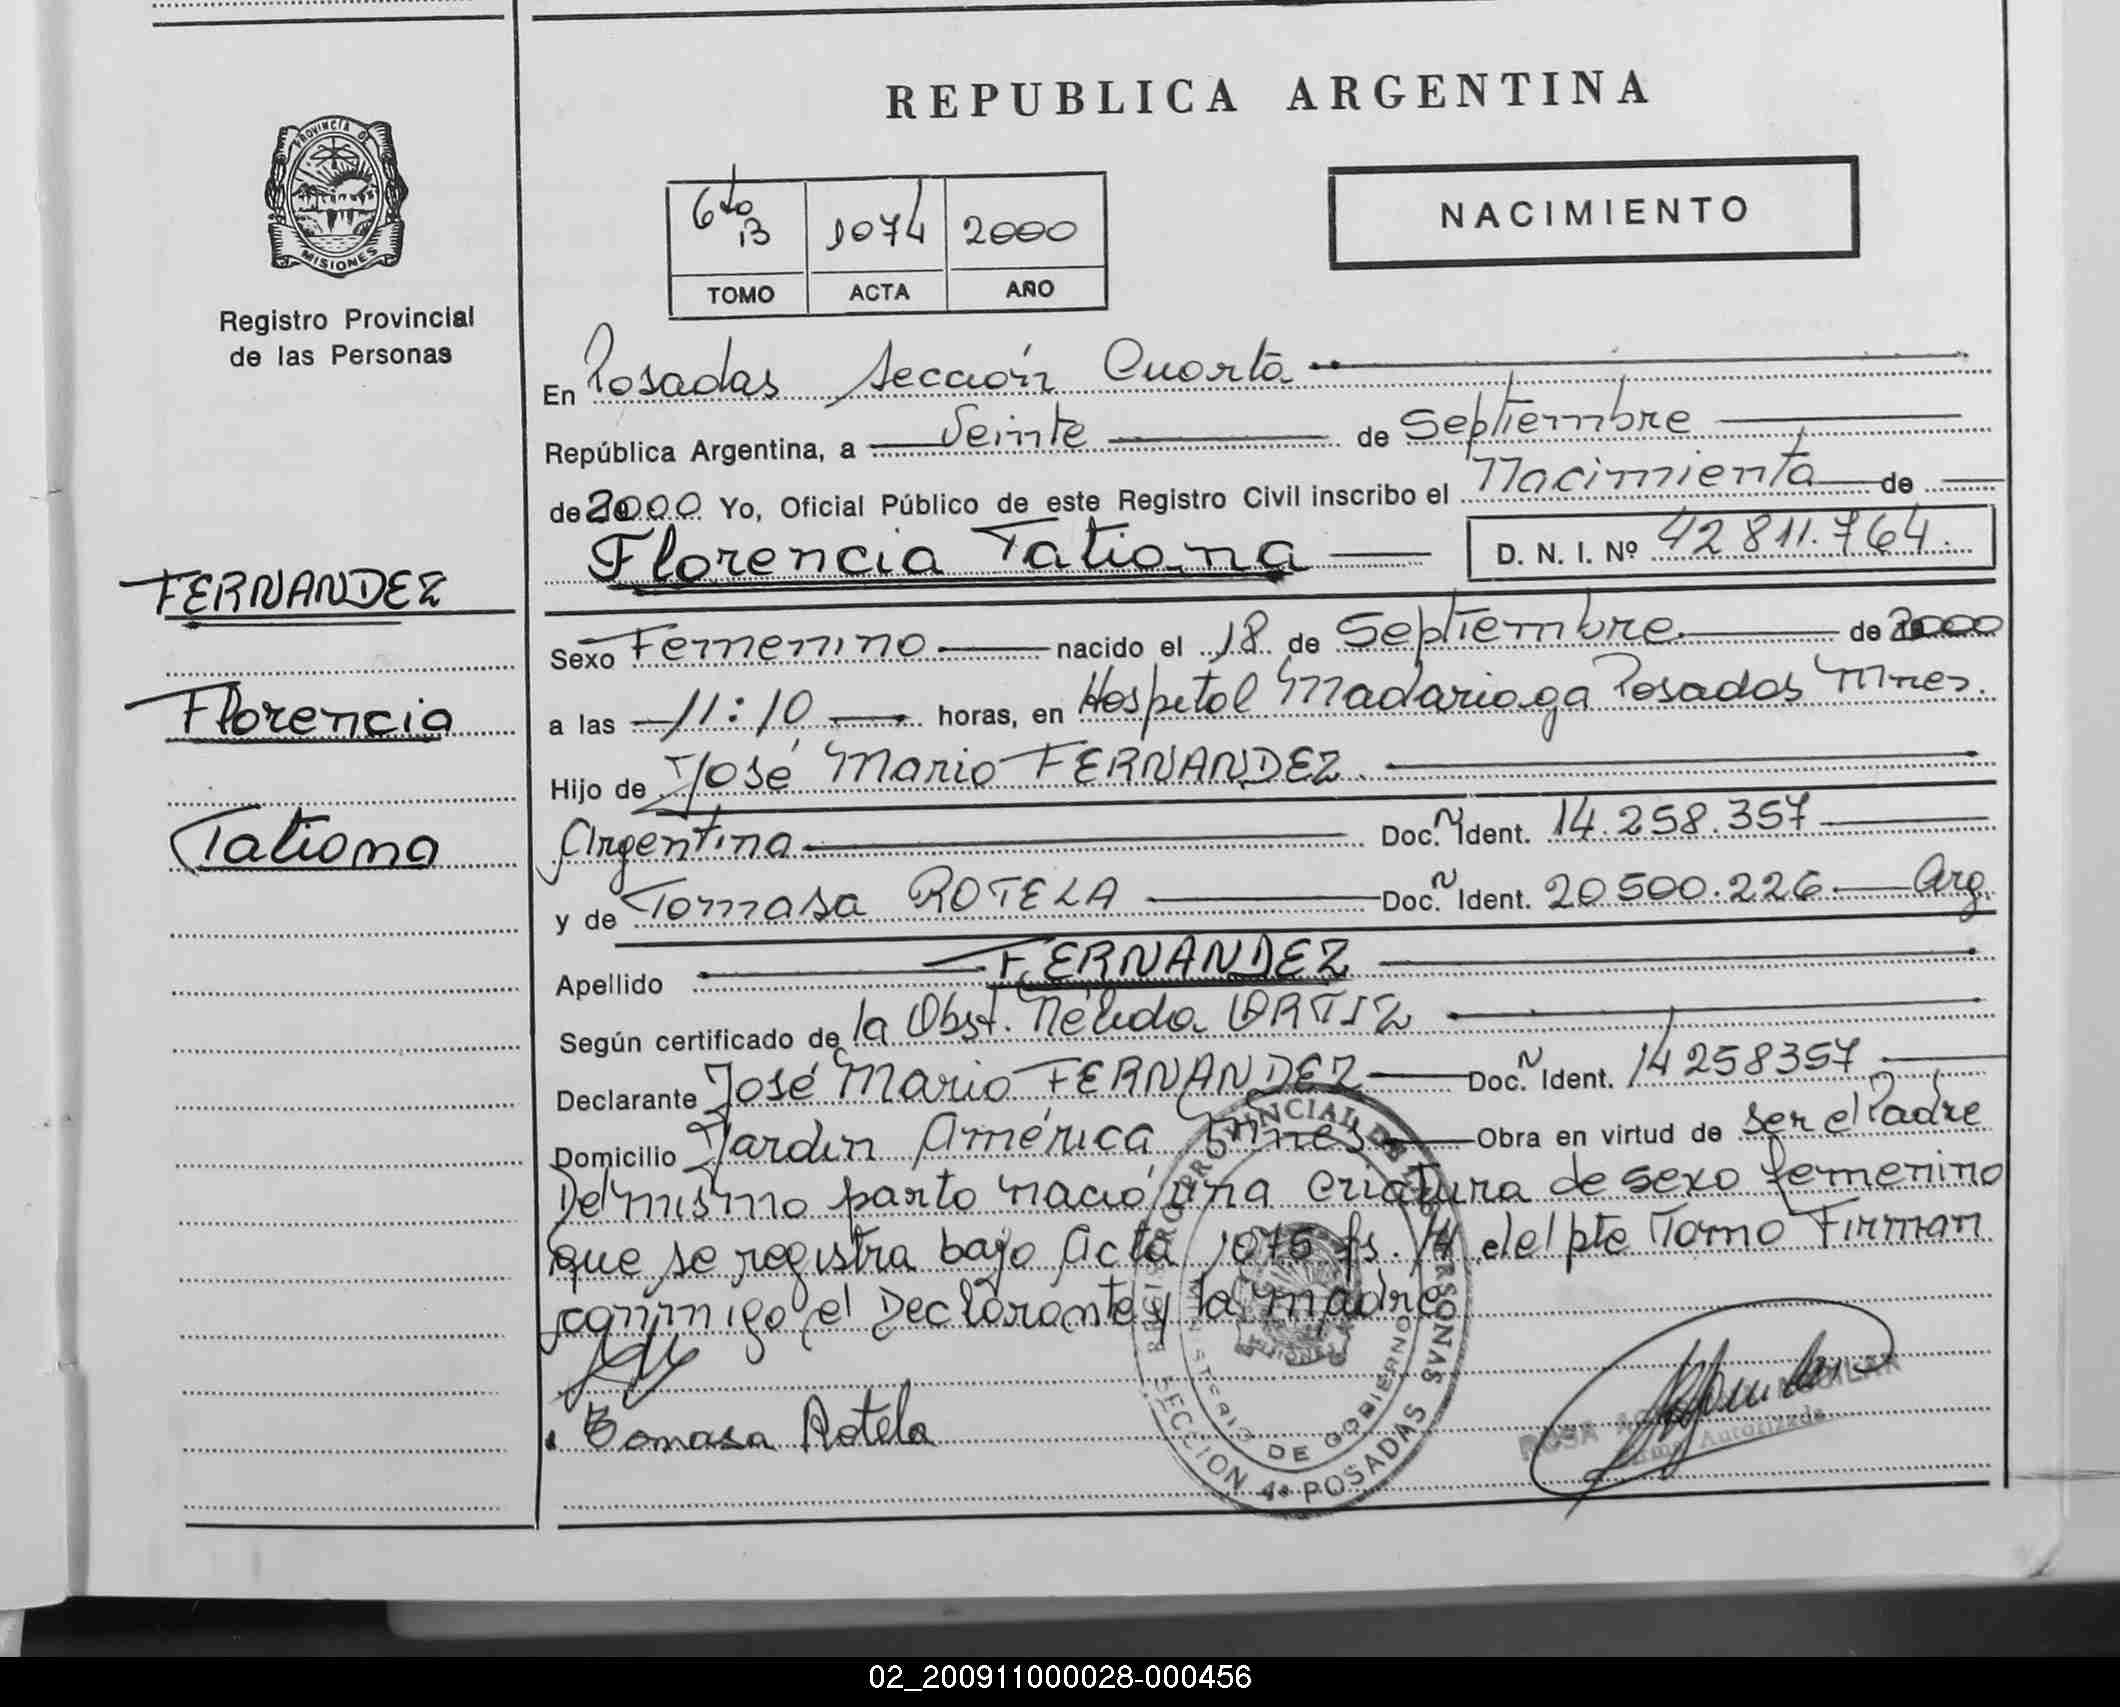 PROVINCIA DE
MISIONES
Registro Provincial
de las Personas
FERNANDEZ
Florencia
Tatiana
REPUBLICA ARGENTINA
6to 13 1074 2000
TOMO ACTA AÑO
NACIMIENTO
En Posadas Sección Cuarta
República Argentina, a Veinte de Septiembre
de 2000 Yo, Oficial Público de este Registro Civil inscribo el Nacimiento de
Florencia Tatiana D. N. I. Nº 42811.764.
Sexo Femenino nacido el 18 de Septiembre de 2000
a las 11:10 horas, en Hospital Madariaga Posadas Mnes.
Hijo de José Mario FERNANDEZ.
Argentina Doc. N Ident. 14.258.357
y de Tomasa ROTELA Doc. N Ident. 20500.226 Arg.
Apellido FERNANDEZ
Según certificado de la Obst. Nélida ORTIZ
Declarante José Mario FERNANDEZ Doc. N Ident. 14258357
Domicilio Jardin América Mnes Obra en virtud de ser el Padre
Del mismo parto nació una criatura de sexo femenino
que se registra bajo Acta 1075 fs. 14 del pte Tomo Firman
conmigo el Declarante y la madre
Tomasa Rotela
REGISTRO PROVINCIAL DE LAS PERSONAS
MINISTERIO DE GOBIERNO
SECCION 4ª POSADAS
ROSA AGUILAR
Firma Autorizada
02_200911000028-000456